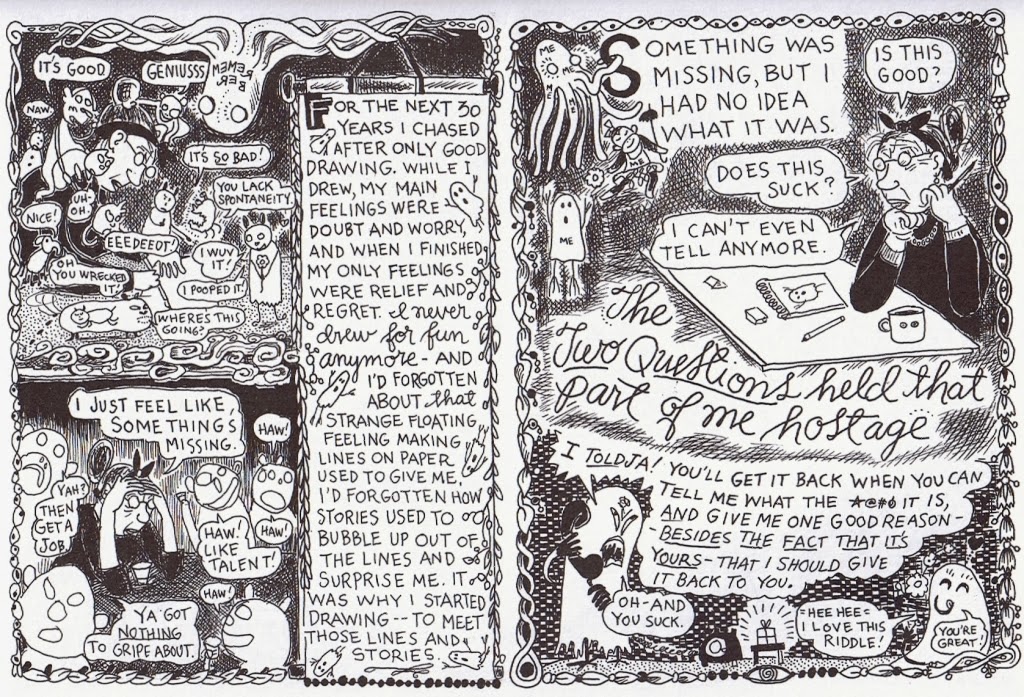 IT'S GOOD
GENIUSSS
REMEM
BER
NAW.
IT'S SO BAD!
YOU LACK
SPONTANEITY.
NICE!
UH-
OH.
EEEDEEOT!
I WUV
IT!
OH
YOU WRECKED
IT!
I POOPED IT!
WHERE'S THIS
GOING?
I JUST FEEL LIKE,
SOMETHING'S
MISSING.
HAW!
YAH?
THEN
GET A
JOB
HAW!
LIKE
TALENT!
HAW!
HAW!
YA GOT
NOTHING
TO GRIPE ABOUT.
FOR THE NEXT 30
YEARS I CHASED
AFTER ONLY GOOD
DRAWING. WHILE I
DREW, MY MAIN
FEELINGS WERE
DOUBT AND WORRY,
AND WHEN I FINISHED
MY ONLY FEELINGS
WERE RELIEF AND
REGRET. I never
drew for fun
anymore - AND
I'D FORGOTTEN
ABOUT that
STRANGE FLOATING
FEELING MAKING
LINES ON PAPER
USED TO GIVE ME,
I'D FORGOTTEN HOW
STORIES USED TO
BUBBLE UP OUT OF
THE LINES AND
SURPRISE ME. IT
WAS WHY I STARTED
DRAWING -- TO MEET
THOSE LINES AND
STORIES.
ME
ME
ME
ME
SOMETHING WAS
MISSING, BUT I
HAD NO IDEA
WHAT IT WAS.
IS THIS
GOOD?
DOES THIS
SUCK?
ME
I CAN'T EVEN
TELL ANYMORE.
The
Two Questions held that
part of me hostage
I TOLDJA! YOU'LL GET IT BACK WHEN YOU CAN
TELL ME WHAT THE *@#¢ IT IS,
AND GIVE ME ONE GOOD REASON
BESIDES THE FACT THAT IT'S
YOURS - THAT I SHOULD GIVE
IT BACK TO YOU.
OH - AND
YOU SUCK.
=HEE HEE=
I LOVE THIS
RIDDLE!
YOU'RE
GREAT!